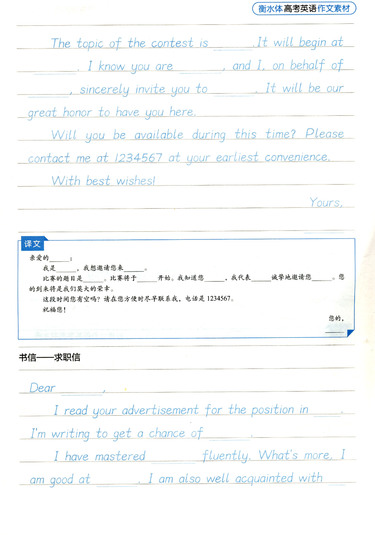 衡水体高考英语作文素材
The topic of the contest is ______. It will begin at
______. I know you are ______, and I, on behalf of
______, sincerely invite you to ______. It will be our
great honor to have you here.
Will you be available during this time? Please
contact me at 1234567 at your earliest convenience.
With best wishes!
Yours,
______
译文
亲爱的______:
我是______,我想邀请您来______。
比赛的题目是______。比赛将于______开始。我知道您______,我代表______诚挚地邀请您______。您
的到来将是我们莫大的荣幸。
这段时间您有空吗?请在您方便时尽早联系我,电话是 1234567。
祝福您!
您的,
______
书信——求职信
Dear ______,
I read your advertisement for the position in ______.
I'm writing to get a chance of ______.
I have mastered ______ fluently. What's more, I
am good at ______. I am also well acquainted with ______